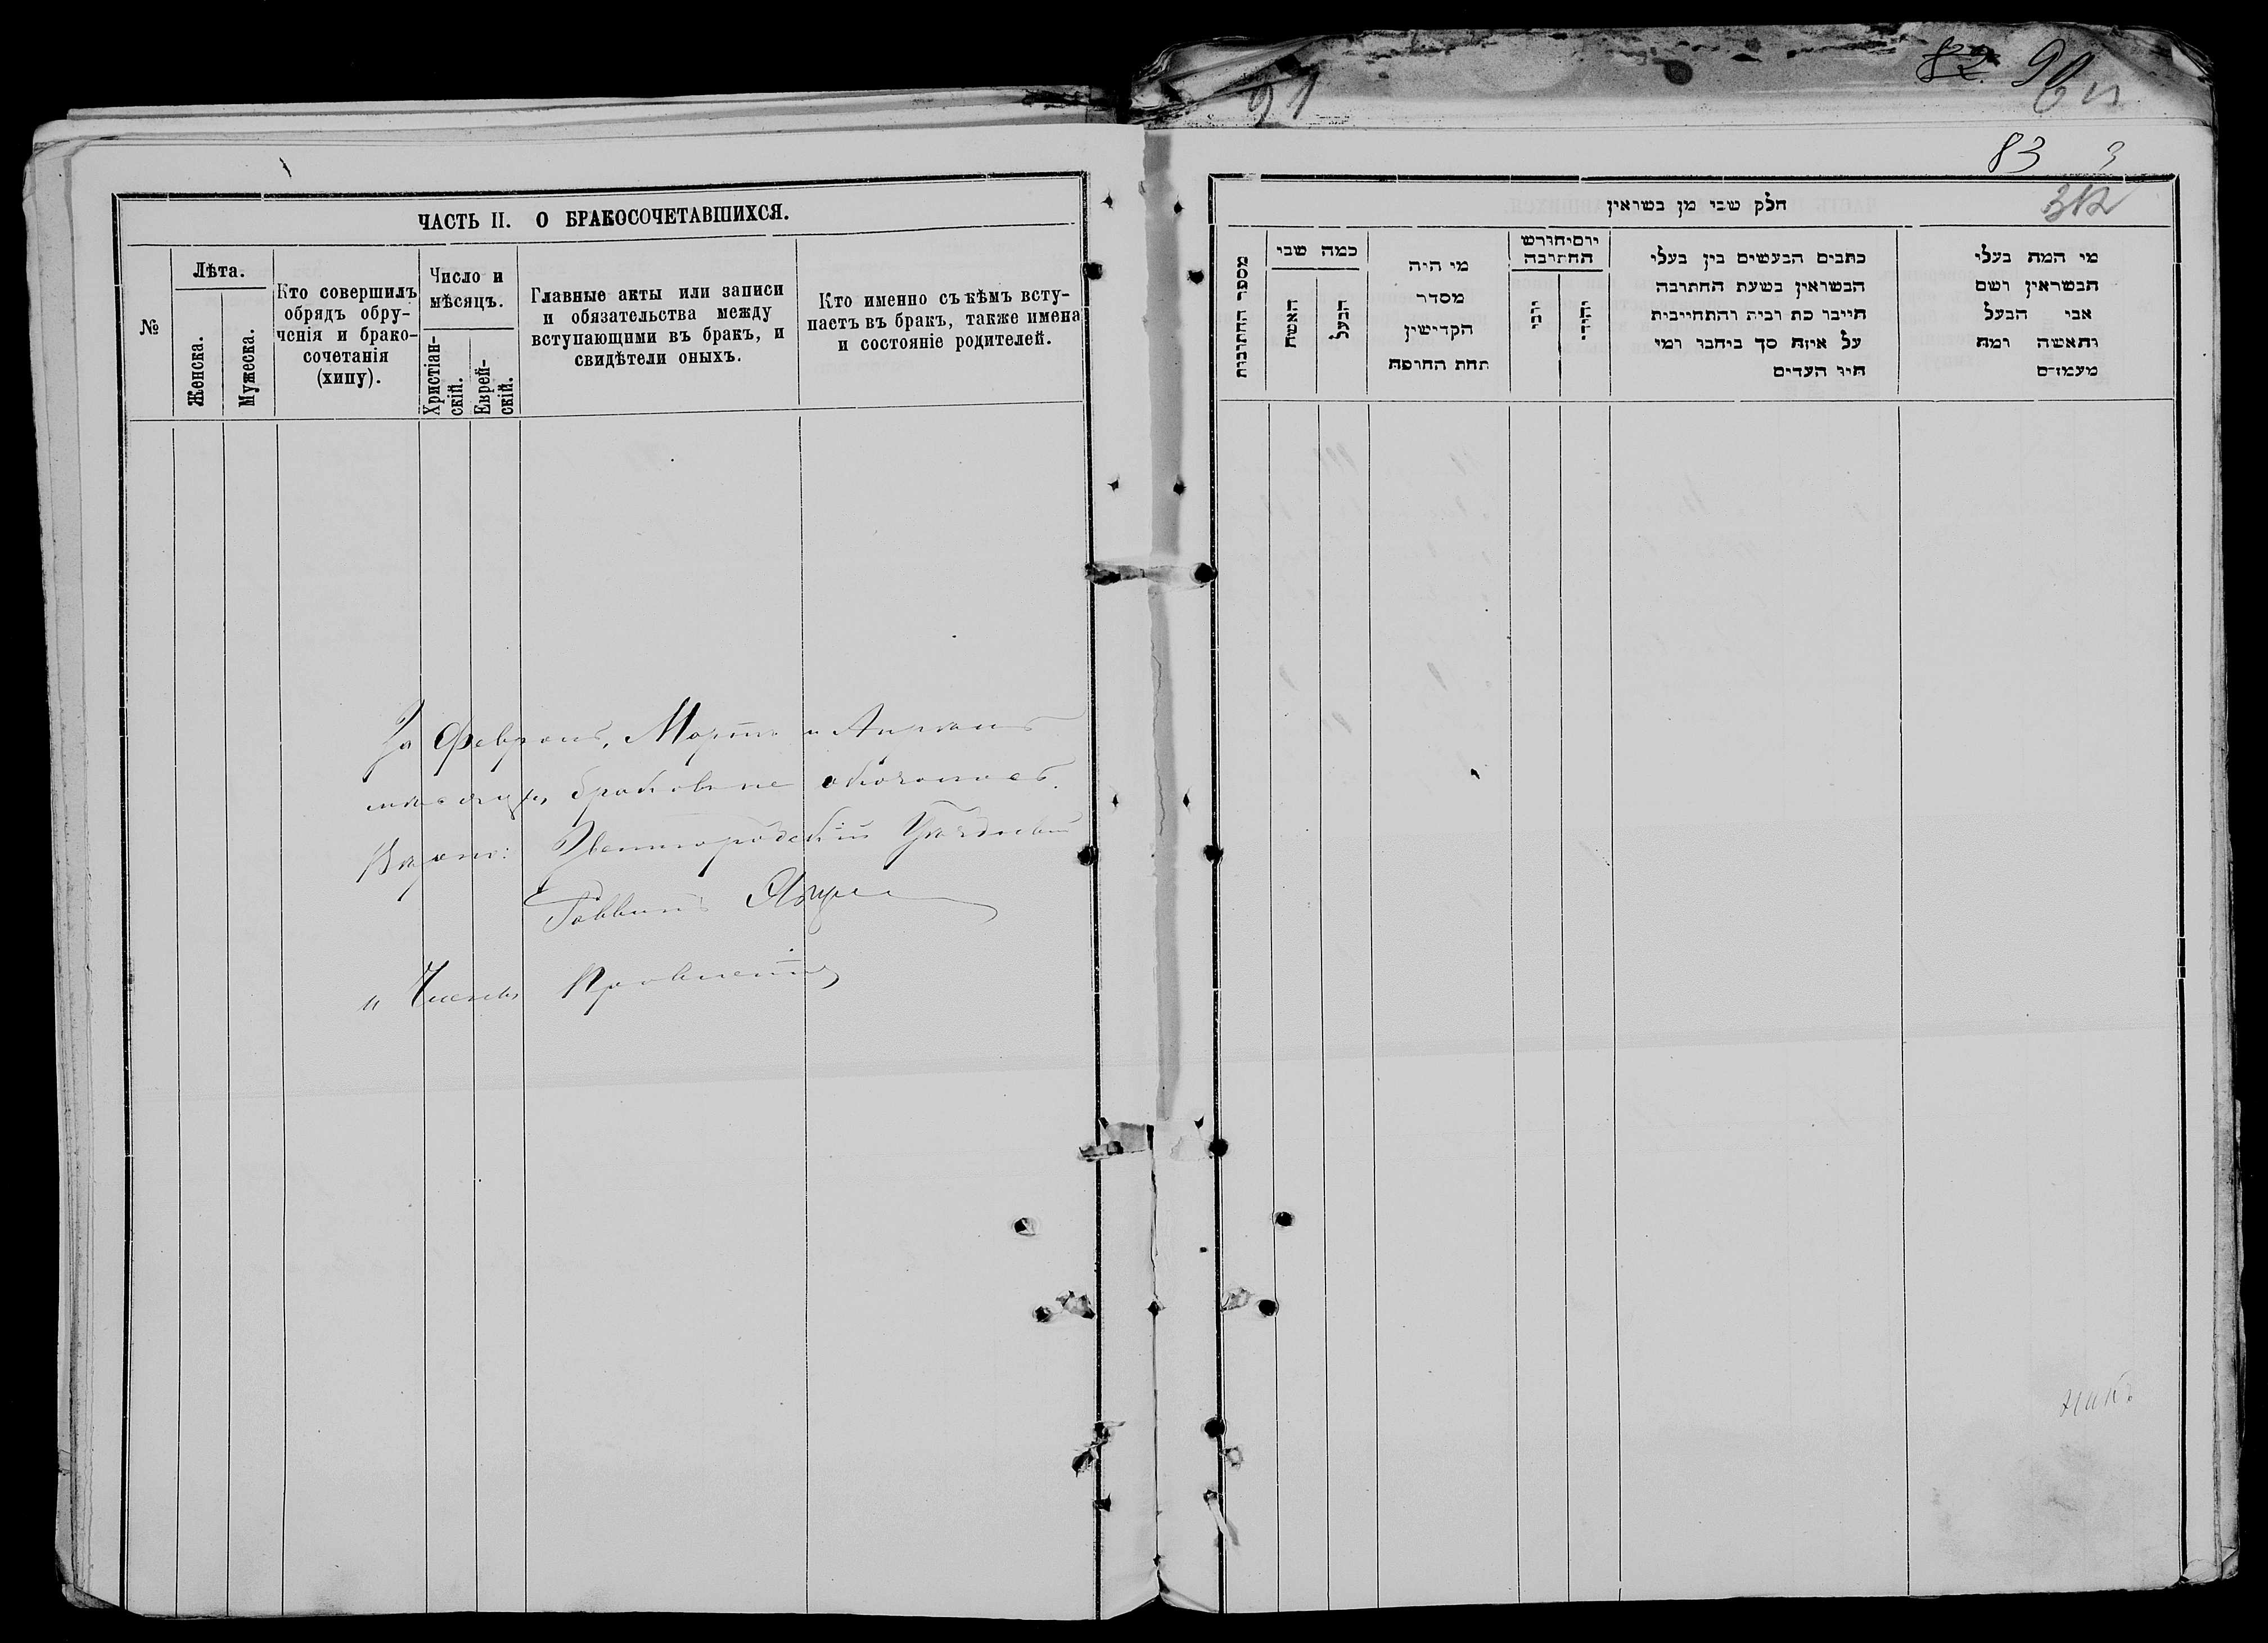 ЧАСТЬ II. О БРАКОСОЧЕТАВШИХСЯ.
№
Лѣта.
Женска.
Мужеска.
Кто совершилъ
обрядъ обру-
ченія и брако-
сочетанія
(хипу).
Число и
мѣсяцъ.
Христіан-
скій.
Еврей-
скій.
Главные акты или записи
и обязательства между
вступающими въ бракъ, и
свидѣтели оныхъ.
Кто именно съ кѣмъ всту-
паетъ въ бракъ, также имена
и состояніе родителей.
За Февраль, Мартъ и Апрѣль
мѣсяцъ браковъ не
Звенигородскій Уѣздный
Раввинъ
Членъ Правленія
91
82 90
83 3
חלק שני מן בשואין
מספר החתונות
כמה שני
האשה
הבעל
מי היה
מסדר
הקדישין
תחת החופה
יום יחודש
החתונה
יהודי
כתבים הנעשים בין בעלי
הנשואין בשעת החתונה
חייבו כת ובית והתחייבית
על איזה סך ביחבו ומי
היו העדים
מי המה בעלי
הנשואין ושם
אבי הבעל
והאשה ומה
מעמדם